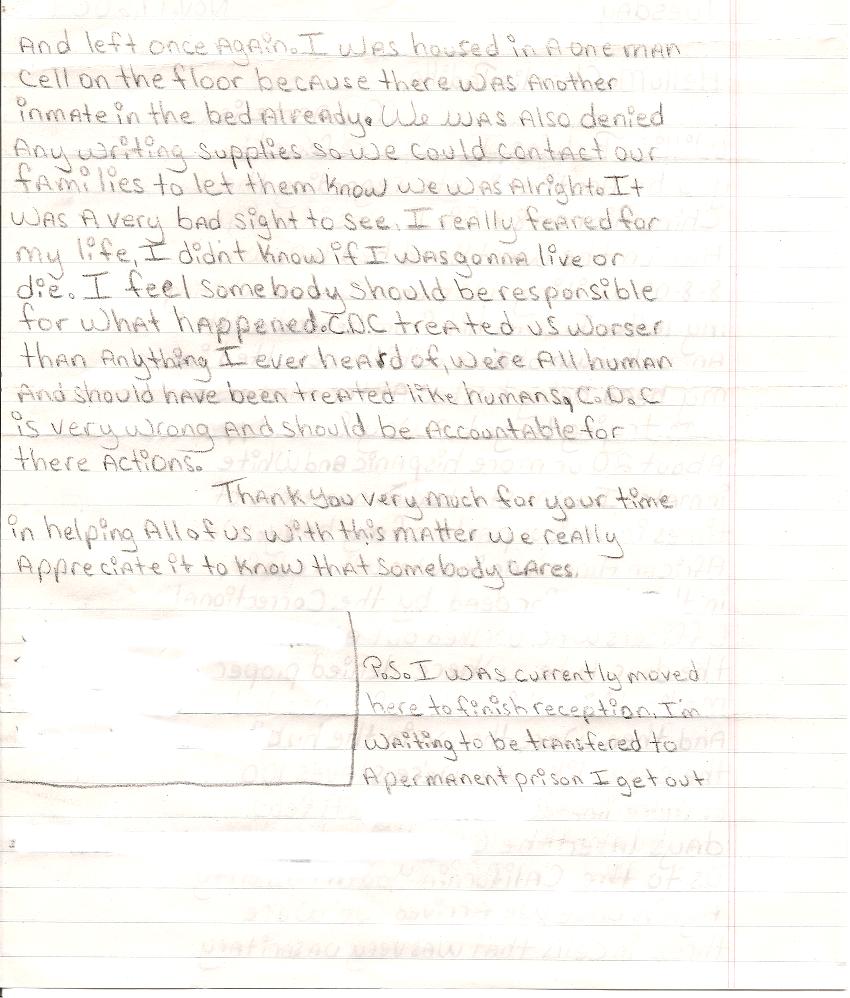 And left once again. I was housed in a one man
cell on the floor because there was another
inmate in the bed already. We was also denied
any writing supplies so we could contact our
families to let them know we was alright. It
was a very bad sight to see, I really feared for
my life, I didn't know if I was gonna live or
die. I feel somebody should be responsible
for what happened. CDC treated us worser
than anything I ever heard of, we're all human
and should have been treated like humans, C.D.C
is very wrong and should be accountable for
there actions.
Thank you very much for your time
in helping all of us with this matter we really
appreciate it to know that somebody cares.
P.S. I was currently moved
here to finish reception. I'm
waiting to be transfered to
a permanent prison I get out